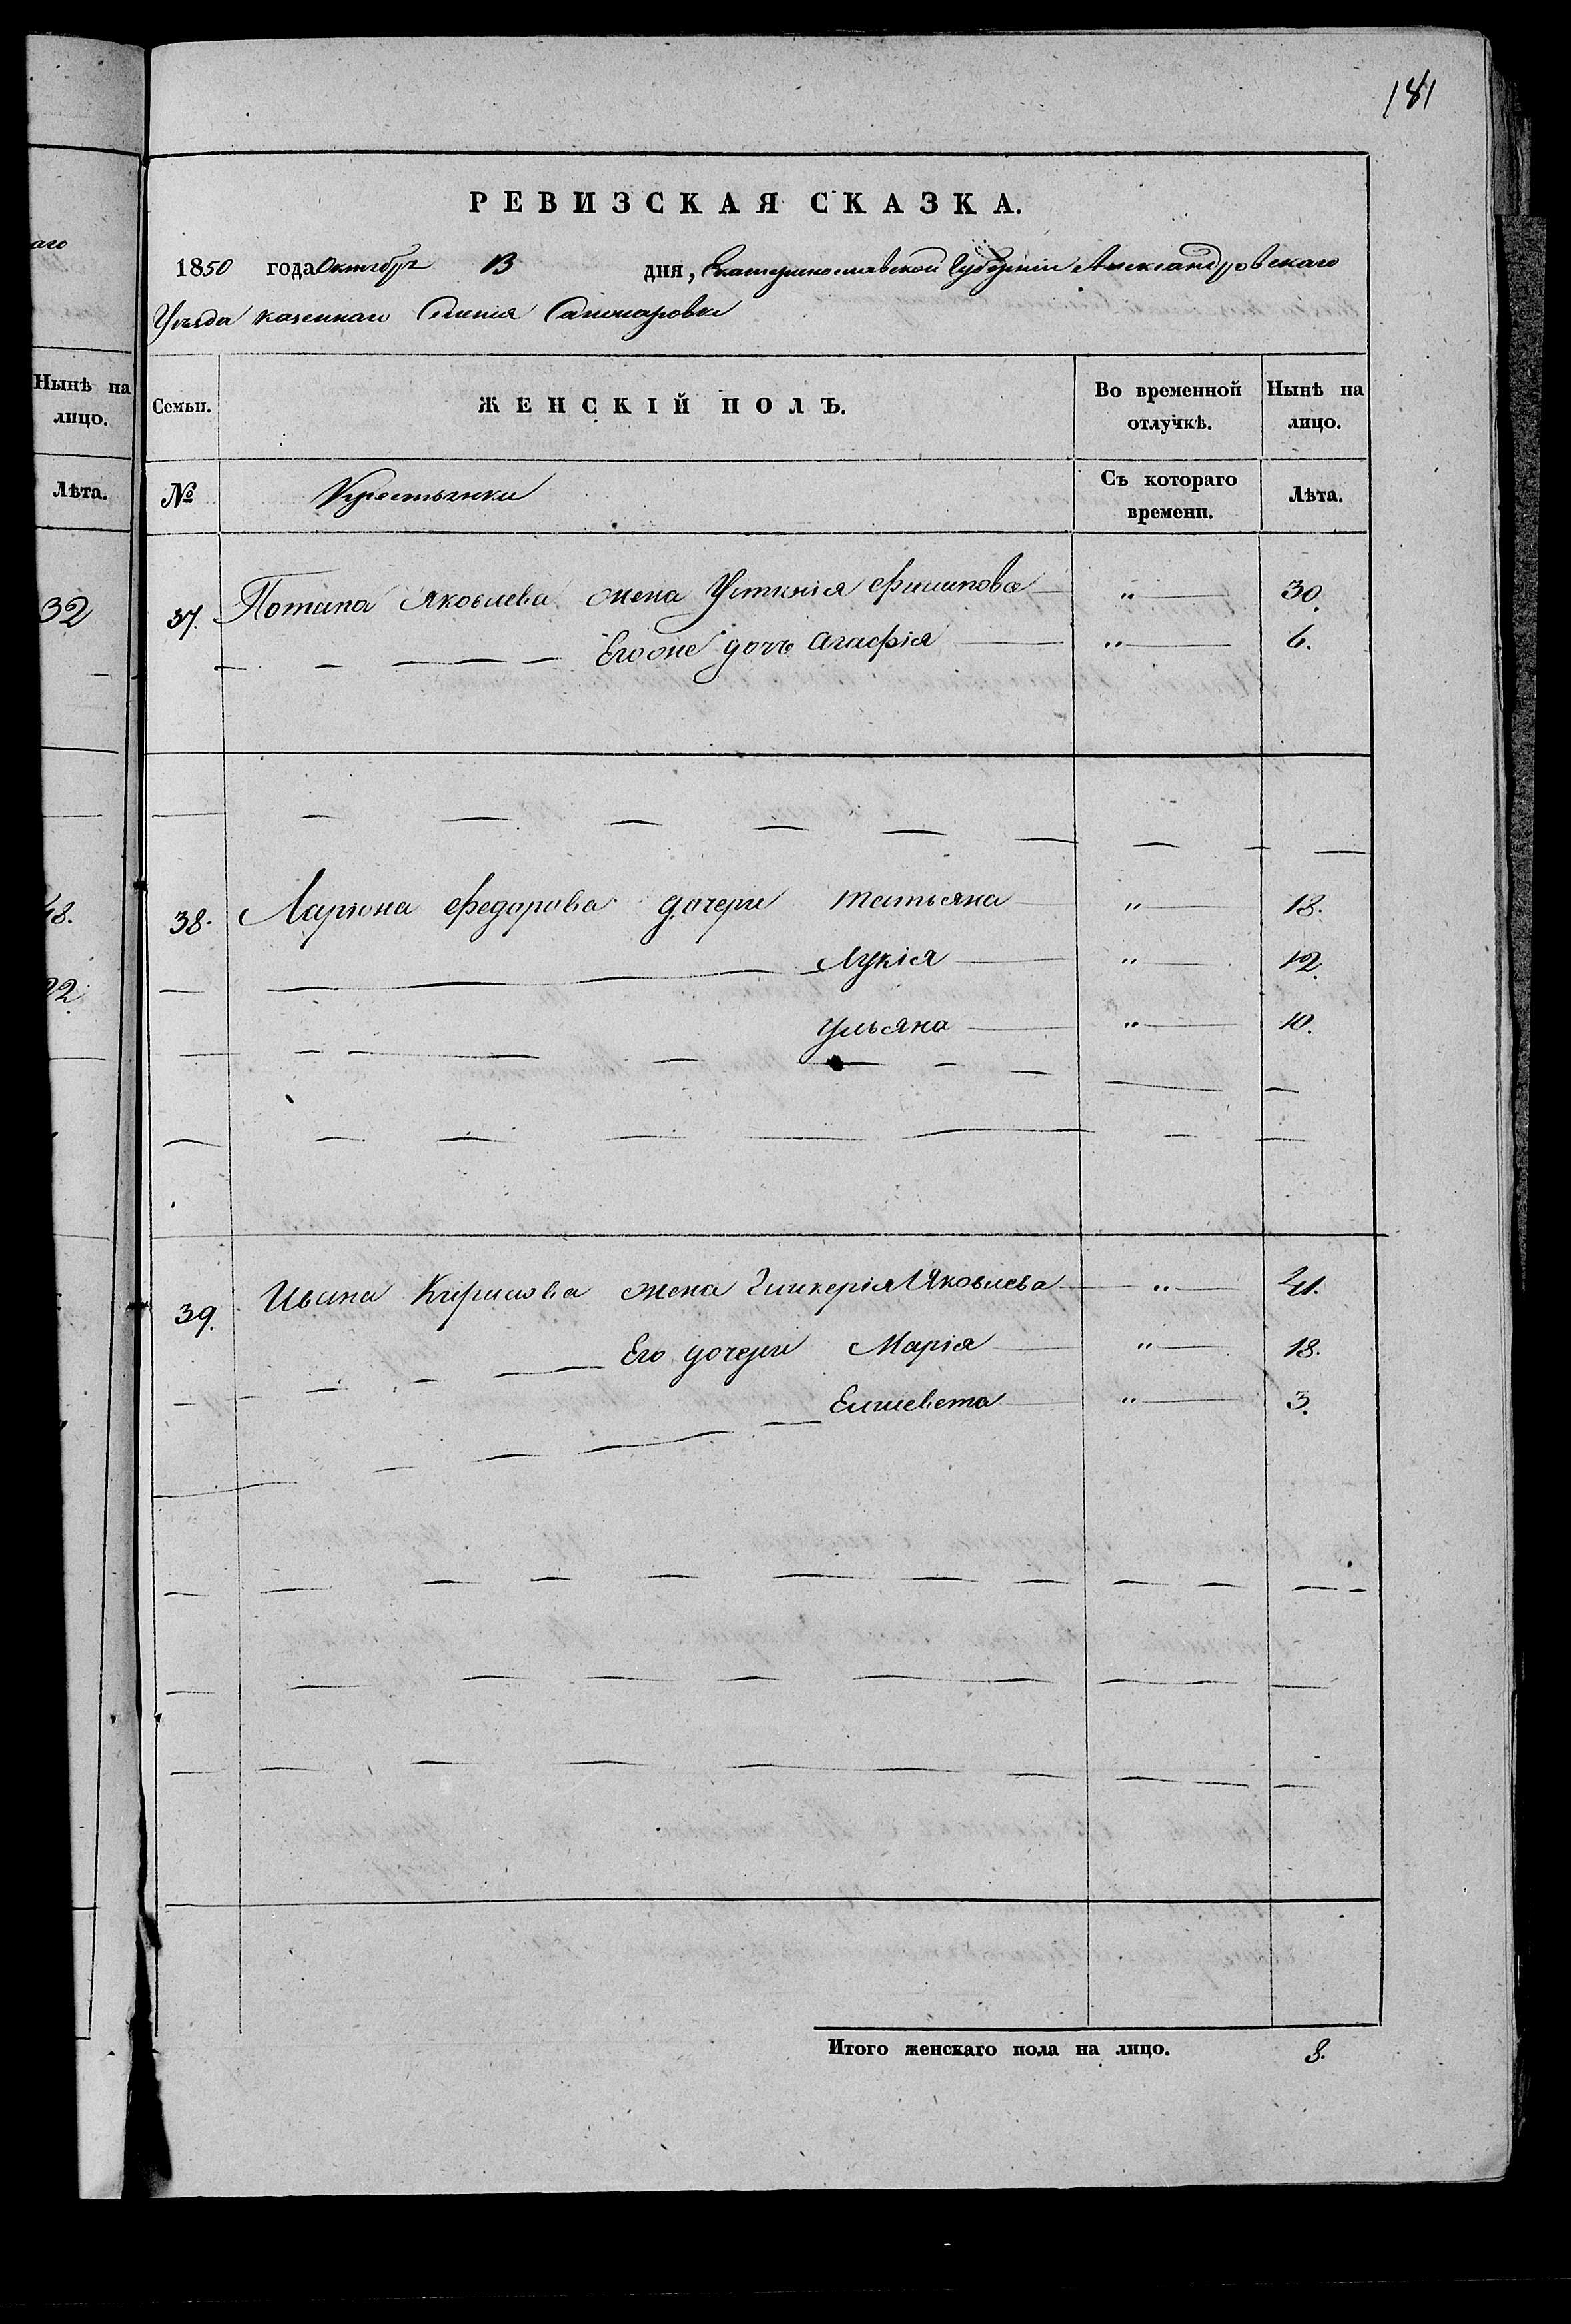 181
аго
РЕВИЗСКАЯ СКАЗКА.
1850 года Октября 13 дня, Екатеринославской Губерніи Александровскаго
Уѣзда казеннаго Селенія
Нынѣ на лицо.
Лѣта.
32
48.
22.
Семьи. ЖЕНСКІЙ ПОЛЪ. Во временной отлучкѣ. Нынѣ на лицо.
№ Крестьянки Съ котораго времени. Лѣта.
37. Потапа Яковлева жена Устинія Филипова „ 30.
Его же дочь Агафія „ 6.
38. Ларіона Федорова дочери Татьяна „ 18.
Лукія „ 12.
Ульяна „ 10.
39. Ивана Кирилова жена Гликерія Яковлева „ 41.
Его дочери Марія „ 18.
Елисевета „ 3.
Итого женскаго пола на лицо. 8.